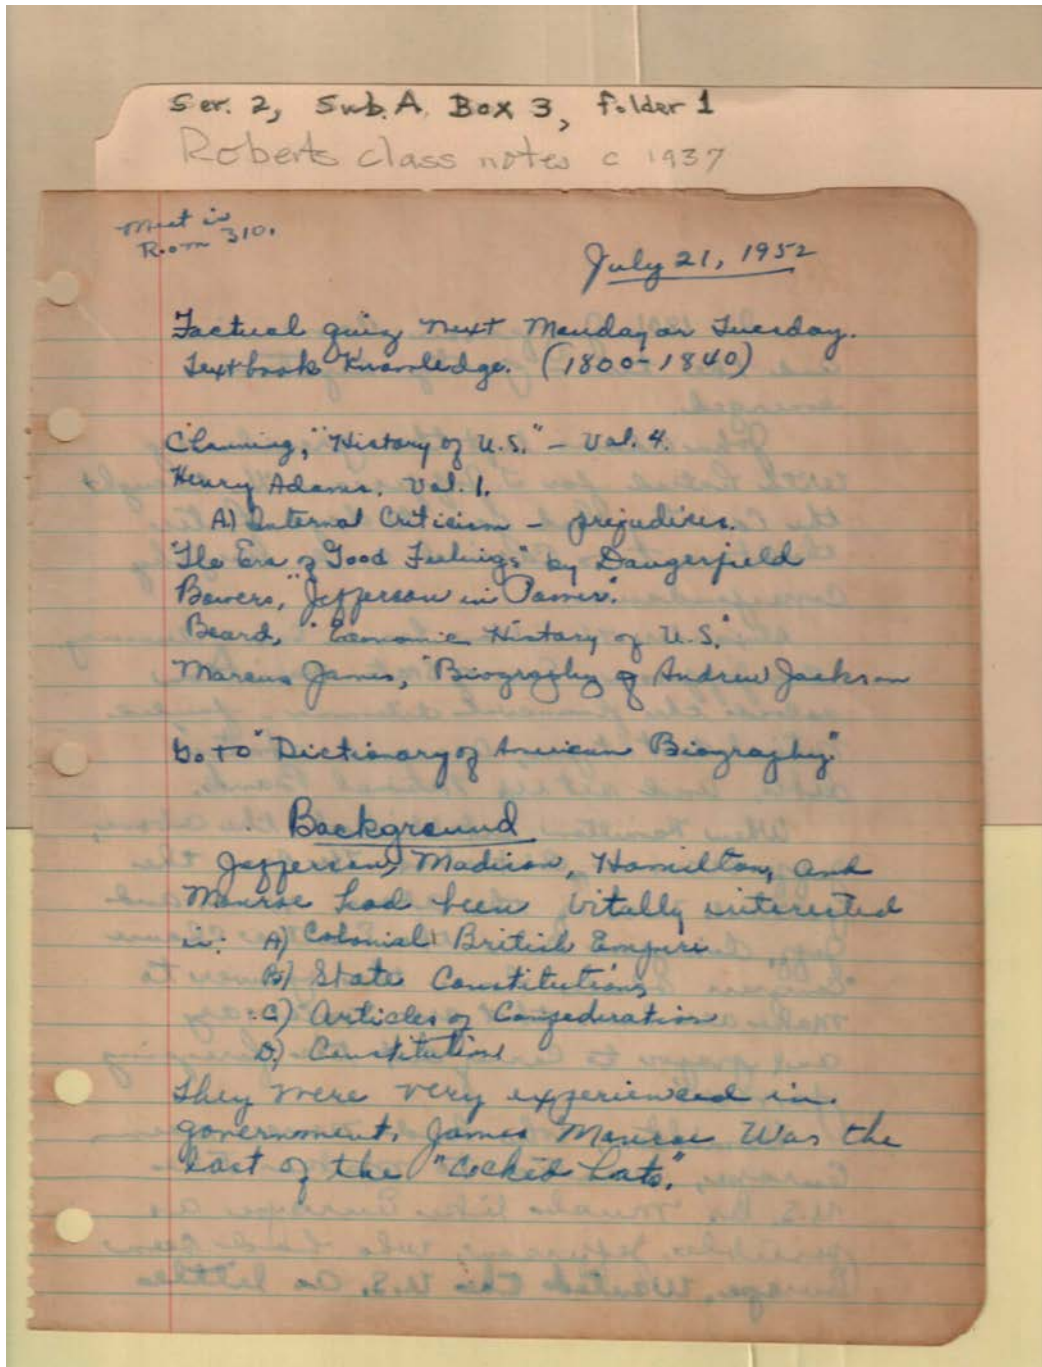 Ser. 2, Sub. A. Box 3, folder 1
Roberts class notes c 1937
Meet in
Room 310.
July 21, 1952
Factual quiz next Monday or Tuesday.
Textbook Knowledge. (1800-1840)
Channing, "History of U.S." - Vol. 4.
Henry Adams. Vol. 1.
A) Internal Criticism - prejudices.
"The Era of Good Feelings" by Dangerfield
Bowers, "Jefferson in Power".
Beard, "Economic History of U.S."
Marcus James, "Biography of Andrew Jackson
Go to "Dictionary of American Biography."
Background
Jefferson, Madison, Hamilton, and
Monroe had been vitally interested
in: A) Colonial British Empire
B) State Constitutions
C) Articles of Confederation
D) Constitution
They were very experienced in
government. James Monroe was the
last of the "Cocked hats."